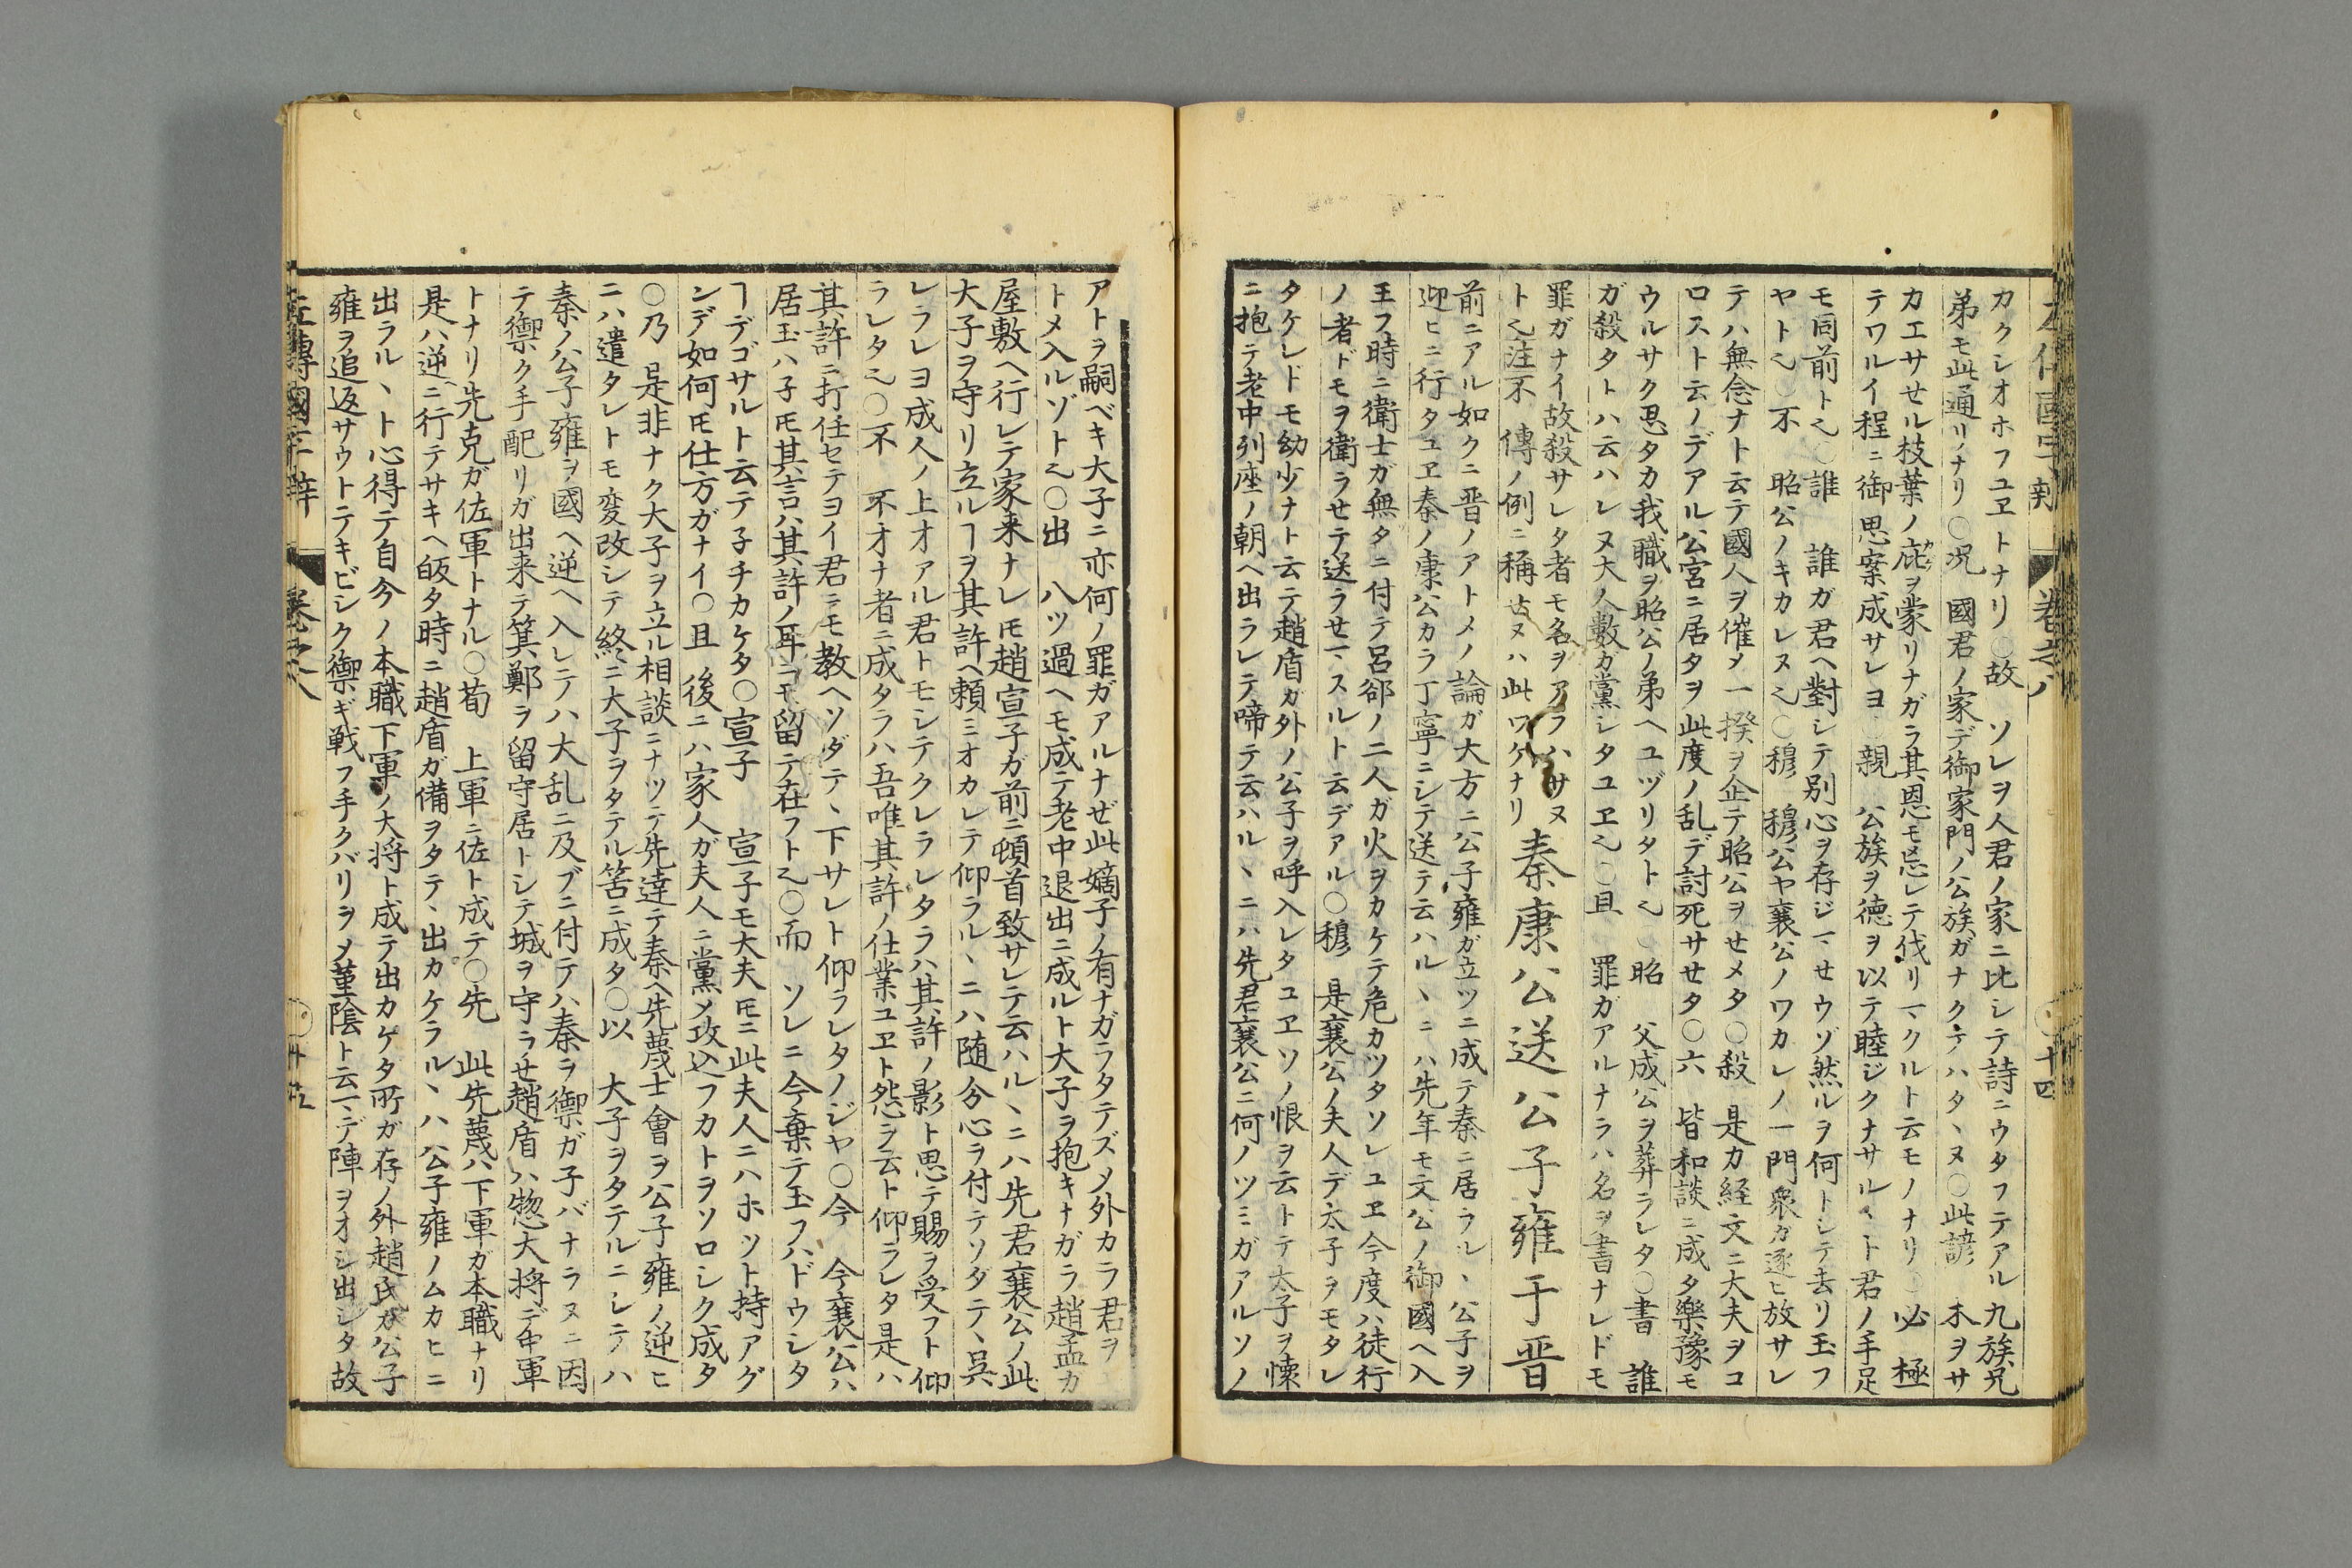 左傳國字辨 卷之八 十四
カクシオホフユヱトナリ○故 ソレヲ人君ノ家ニ比シテ詩ニウタフテアル九族兄
弟モ此通リナリ○况 國君ノ家デ御家門ノ公族ガナクテハタヽヌ○此諺 木ヲサ
カエサせル枝葉ノ庇ヲ蒙リナガラ其恩モ忘レテ伐リマクルト云モノナリ○必 極
テワルイ程ニ御思案成サレヨ○親 公族ヲ徳ヲ以テ睦ジクナサルヽト君ノ手足
モ同前ト也○誰 誰ガ君ヘ對シテ别心ヲ存ジマせウゾ然ルヲ何トシテ去リ玉フ
ヤト也○不 昭公ノキカレヌ也○穆 穆公ヤ襄公ノワカレノ一門衆ガ逐ヒ放サレ
テハ無念ナト云テ國人ヲ催メ一揆ヲ企テ昭公ヲせメタ○殺 是カ経文ニ大夫ヲコ
ロストト云ノデアル公宮ニ居タヲ此度ノ乱デ討死サせタ○六 皆和談ニ成タ樂豫モ
ウルサク思タカ我職ヲ昭公ノ弟ヘユヅリタト也○昭 父成公ヲ葬ラレタ○書 誰
ガ殺タトハ云ハレヌ大人數ガ黨シタユヱ也○且 罪ガアルナラハ名ヲ書ナレドモ
罪ガナイ故殺サレタ者モ名ヲアラハサヌ
ト也注不 傳ノ例ニ稱せヌハ此ワケナリ
秦康公送公子雍于晋
前ニアル如クニ晋ノアトメノ論ガ大方ニ公子雍ガ立ツニ成テ秦ニ居ラルヽ公子ヲ
迎ヒニ行タユヱ秦ノ康公カラ丁寧ニシテ送テ云ハルヽニハ先年モ文公ノ御國ヘ入
王フ時ニ衛士ガ無タニ付テ呂郤ノ二人ガ火ヲカケテ危カツタソレユヱ今度ハ徒行
ノ者ドモヲ衛ラせテ送ラせマスルト云デアル○穆 是襄公ノ夫人デ太子ヲモタレ
タケレドモ幼少ナト云テ趙盾ガ外ノ公子ヲ呼入レタユヱソノ恨ヲ云トテ太子ヲ懐
ニ抱テ老中列座ノ朝ヘ出ラレテ啼テ云ハルヽニハ先君襄公ニ何ノツミガアルソノ
アトヲ嗣ベキ大子ニ亦何ノ罪ガアルナゼ此嫡子ノ有ナガラタテズメ外カラ君ヲ
トメ入ルゾト也○出 八ツ過ヘモ成テ老中退出ニ成ルト大子ヲ抱キナガラ趙孟カ
屋敷ヘ行レテ家来ナレ𪜈趙宣子ガ前ニ頓首致サレテ云ハルヽニハ先君襄公ノ此
大子ヲ守リ立ルヿヲ其許ヘ頼ミオカレテ仰ラルヽニハ随分心ヲ付テソタテヽ呉
レラフレヨ成人ノ上オアル君トモシテクレラレタラハ其許ノ影ト思テ賜ヲ受フト仰
ラレタ也○不 不オナ者ニ成タラハ吾唯其許ノ仕業ユヱト怨ヲ云ト仰ラレタ是ハ
其許ニ打任セテヨイ君ニモ教ヘソダテヽ下サレト仰ラレタノジヤ○今 今襄公ハ
居玉ハ子𪜈其言ハ其許ノ耳ニモ留テ在フト也○而 ソレニ今棄テ玉フハドウシタ
ヿデゴサルト云テ子チカケタ○宣子 宣子モ大夫𪜈ニ此夫人ニハホツト持アグ
ンデ如何𪜈仕方ガナイ○且 後ニハ家人ガ夫人ニ黨メ攻込フカトヲソロシク成タ
○乃 是非ナク大子ヲ立ル相談ニナツテ先達テ秦ヘ先蔑士會ヲ公子雍ノ逆ヒ
ニハ遣タレトモ変改シテ終ニ大子ヲタテル筈ニ成タ○以 大子ヲタテルニシテハ
秦ノ公子雍ヲ國ヘ逆ヘ入レテハ大乱ニ及ブニ付テハ秦ヲ禦ガ子バナラヌニ因
テ禦ク手配リガ出来テ箕鄭ヲ留守居トシテ城ヲ守ラせ趙盾ハ惣大将デ中軍
トナリ先克ガ佐軍トナル○荀 上軍ニ佐ト成テ○先 此先蔑ハ下軍ガ本職ナリ
是ハ逆ニ行テサキヘ皈タ時ニ趙盾ガ備ヲタテヽ出カケラルヽハ公子雍ノムカヒニ
出ラルヽト心得テ自今ノ本職下軍ノ大将ト成テ出カケタ所ガ存ノ外趙氏ガ公子
雍ヲ追返サウトテキビシク禦ギ戦フ手クバリヲメ菫陰ト云マデ陣ヲオシ出シタ故
左傳國字辨 卷之八